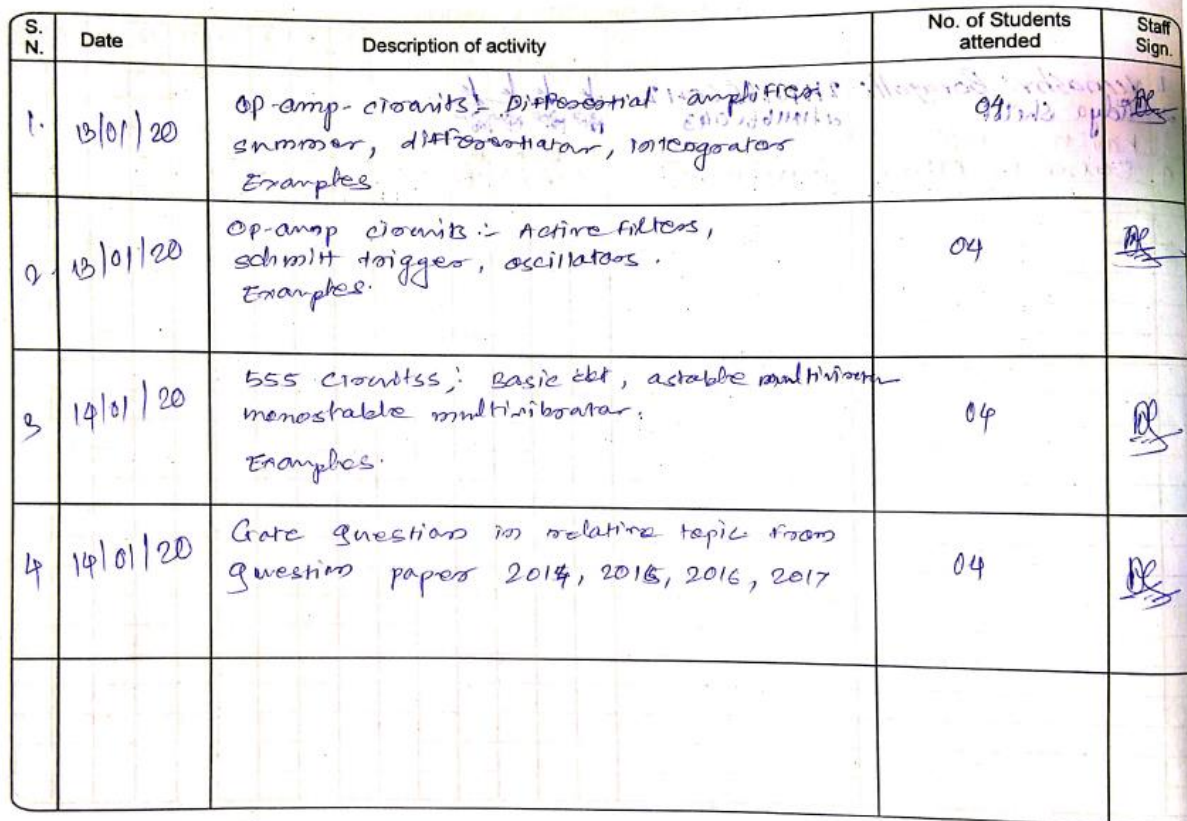 S. N. Date Description of activity No. of Students attended Staff Sign.
1. 13/01/20 Op-amp- circuits:- Differential amplifier:
summer, differentiator, integrator
Examples
04
2. 13/01/20 Op-amp circuits :- Active filters,
schmitt trigger, oscillators.
Examples.
04
3 14/01/20 555 circuitss,: Basic ckt, astable
monostable multivibrator.
Examples.
04
4 14/01/20 Gate question in relative topic from
question paper 2014, 2015, 2016, 2017
04